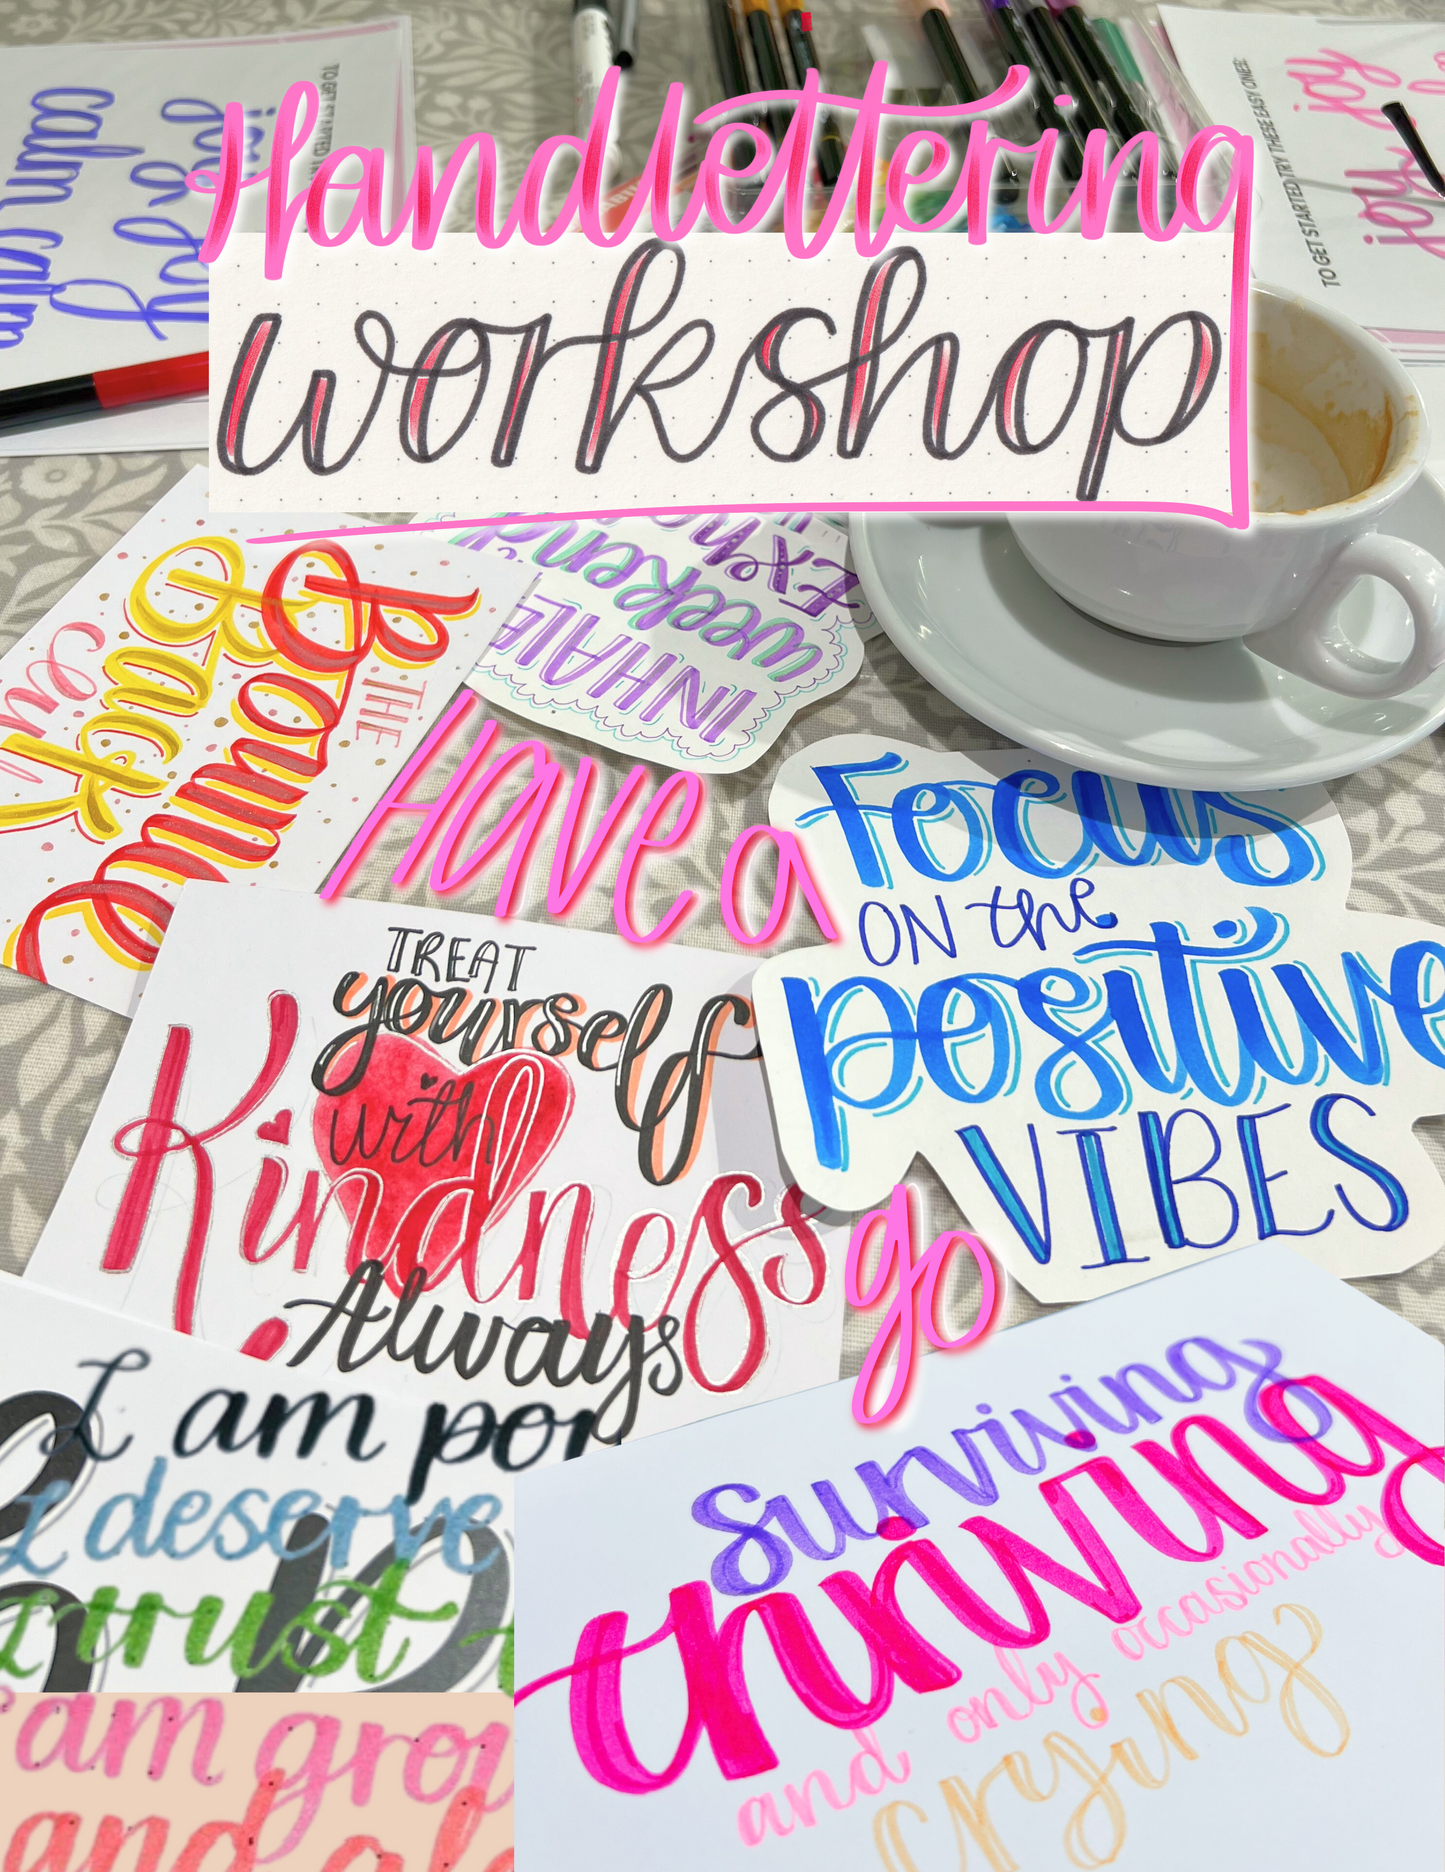 Handlettering
workshop
calm calm
joy joy
TO GET STARTED TRY THESE EASY ONES:
joy joy
THE
Bounce
Back
INHALE
weekend
Have a
go
Focus
ON the
positive
VIBES
TREAT
yourself
with
Kindness
Always
I am
I deserve
I trust
am
and
Surviving
thriving
and only occasionally
crying